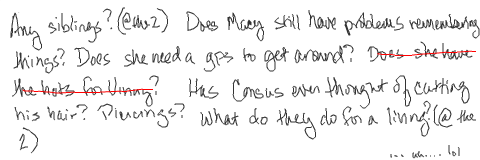 Any siblings? (@ the 2) Does Macy still have problems remembering
things? Does she need a gps to get around? Does she have
the hots for Vinny? Has Consus even thought of cutting
his hair? Piercings? What do they do for a living? (@ the
2)
... um.... lol